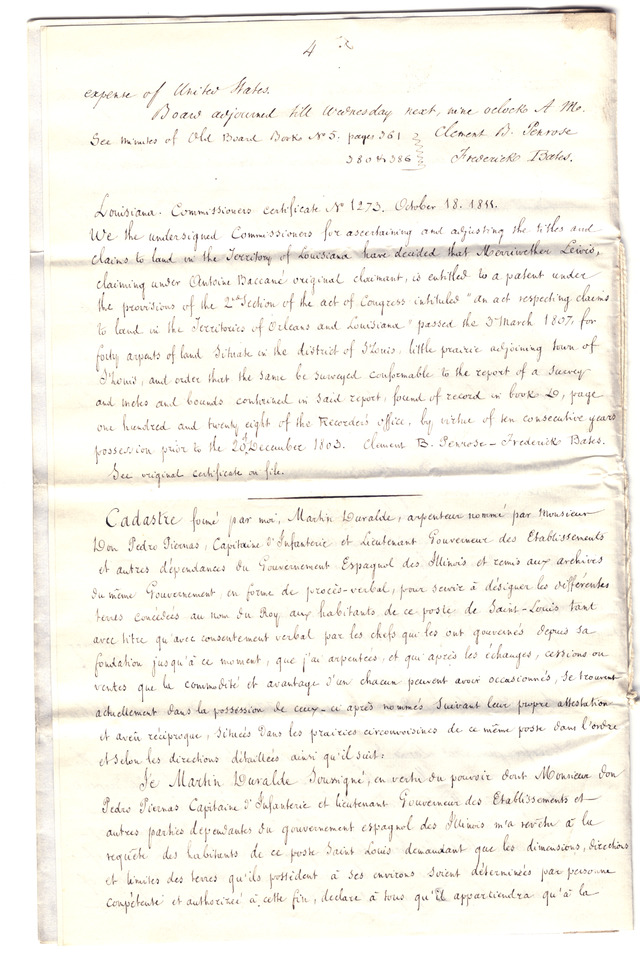 4
expense of United States.
Board adjourned till Wednesday next, nine oclock A Mo.
See minutes of Old Board Book No 5. pages 361 Clement B. Penrose
380 & 386 Frederick Bates.
Louisiana. Commissioners certificate No 1273. October 18. 1811.
We the undersigned Commissioners for ascertaining and adjusting the titles and
claims to land in the Territory of Louisiana have decided that Merriwether Lewis,
claiming under Antoine Baccané original claimant, is entitled to a patent under
the provisions of the 2nd Section of the act of Congress intituled "an act respecting claims
to land in the Territories of Orleans and Louisiana" passed the 3d March 1807, for
forty arpents of land Situate in the district of St Louis, little prairie adjoining town of
St Louis, and order that the same be surveyed conformable to the report of a survey
and metes and bounds contained in said report, found of record in book D, page
one hundred and twenty eight of the Recorder's office, by virtue of ten consecutive years
possession prior to the 20d December 1803. Clement B. Penrose - Frederick Bates.
See original certificate on file.
Cadastre formé par moi, Martin Duralde, arpenteur nommé par Monsieur
Don Pedro Piernas, Capitaine d'Infanterie et Lieutenant Gouverneur des Etablissements
et autres dépendances du Gouvernement Espagnol des Illinois et remis aux archives
du même Gouvernement, en forme de procès-verbal, pour servir à désigner les différentes
terres concédées au nom du Roy aux habitants de ce poste de Saint-Louis tant
avec titre qu'avec consentement verbal par les chefs qui les ont gouvernés depuis sa
fondation jusqu'à ce moment, que j'ai arpentées, et qui après les échanges, cessions ou
ventes que la commodité et avantage d'un chacun peuvent avoir occasionnés, se trouvent
actuellement dans la possession de ceux-ci après nommés suivant leur propre attestation
et aveu réciproque, situées dans les prairies circonvoisines de ce même poste dans l'ordre
et selon les directions détaillées ainsi qu'il suit:
Je Martin Duralde Soussigné, en vertu du pouvoir dont Monsieur Don
Pedro Piernas Capitaine d'Infanterie et lieutenant Gouverneur des Etablissements et
autres parties dépendantes du gouvernement espagnol des Illinois m'a revêtu à la
requête des habitants de ce poste Saint Louis demandant que les dimensions, directions
et limites des terres qu'ils possèdent à ses environs soient déterminées par personne
compétente et authorizée à cette fin, déclare à tous qu'il appartiendra qu'à la